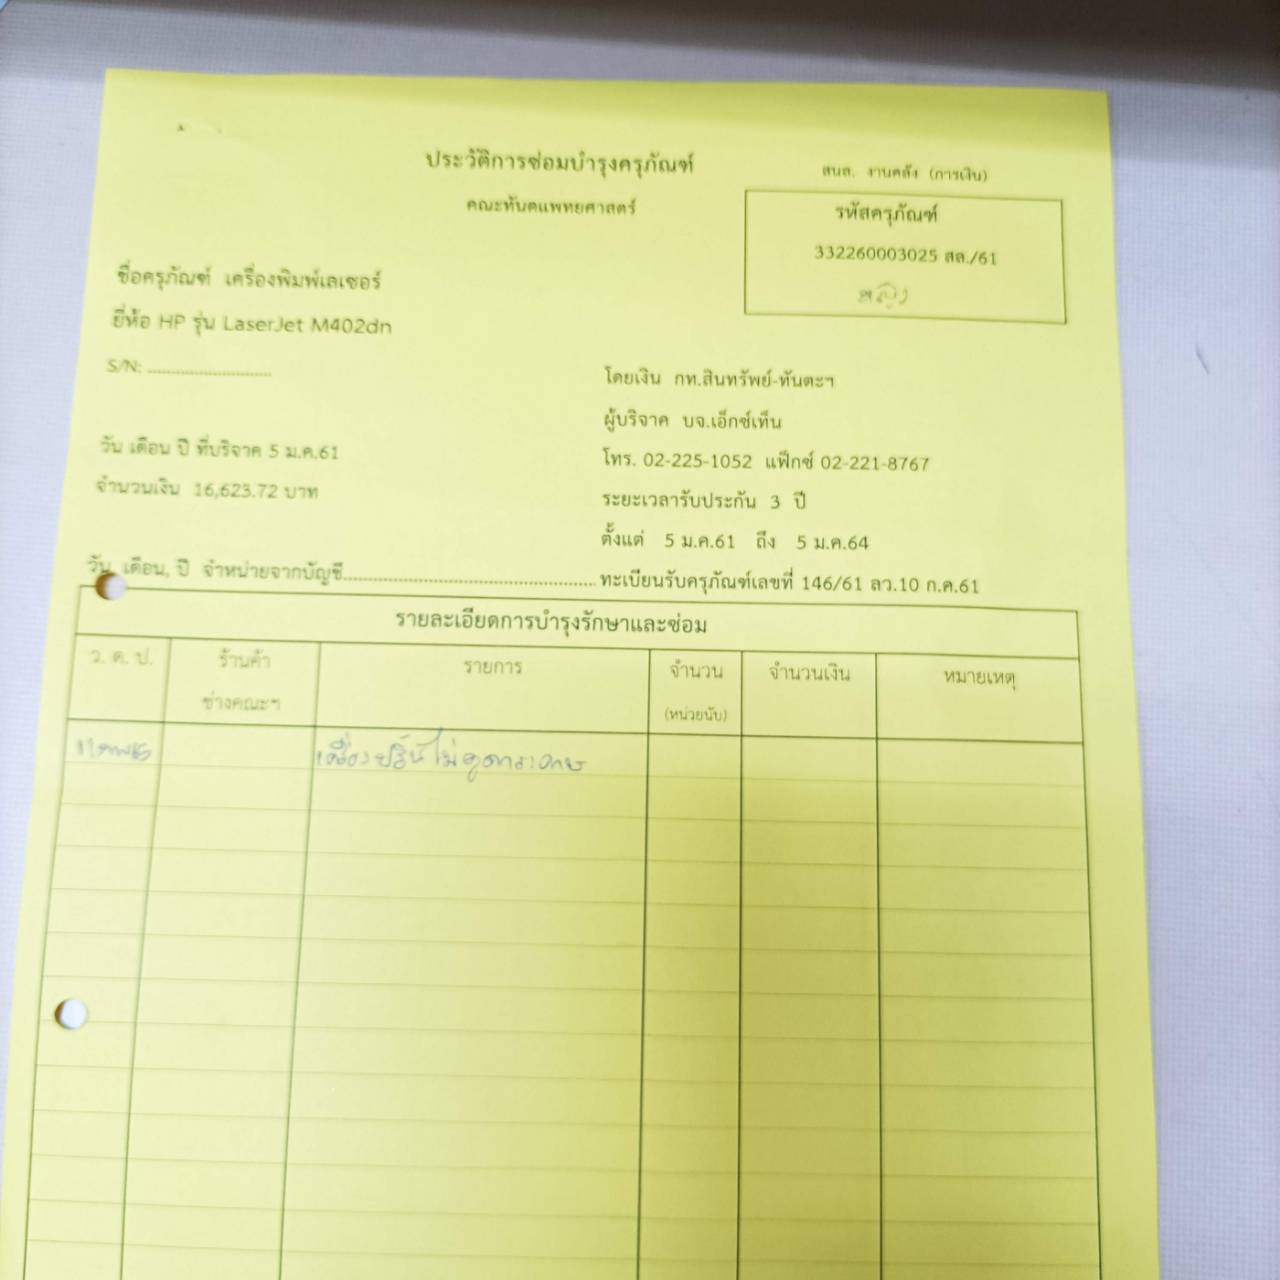 ประวัติการซ่อมบำรุงครุภัณฑ์
คณะทันตแพทยศาสตร์
สนล. งานคลัง (การเงิน)
รหัสครุภัณฑ์
332260003025 สล./61
หญิง
ชื่อครุภัณฑ์ เครื่องพิมพ์เลเซอร์
ยี่ห้อ HP รุ่น LaserJet M402dn
S/N: ............................
โดยเงิน กท.สินทรัพย์-ทันตะฯ
ผู้บริจาค บจ.เอ็กซ์เท็น
วัน เดือน ปี ที่บริจาค 5 ม.ค.61
โทร. 02-225-1052 แฟ็กซ์ 02-221-8767
จำนวนเงิน 16,623.72 บาท
ระยะเวลารับประกัน 3 ปี
ตั้งแต่ 5 ม.ค.61 ถึง 5 ม.ค.64
วัน, เดือน, ปี จำหน่ายจากบัญชี.................................................. ทะเบียนรับครุภัณฑ์เลขที่ 146/61 ลว.10 ก.ค.61
รายละเอียดการบำรุงรักษาและซ่อม
ว. ด. ป. ร้านค้า รายการ จำนวน จำนวนเงิน หมายเหตุ
ช่างคณะฯ (หน่วยนับ)
เครื่องปริ้นไม่ดูดกระดาษ